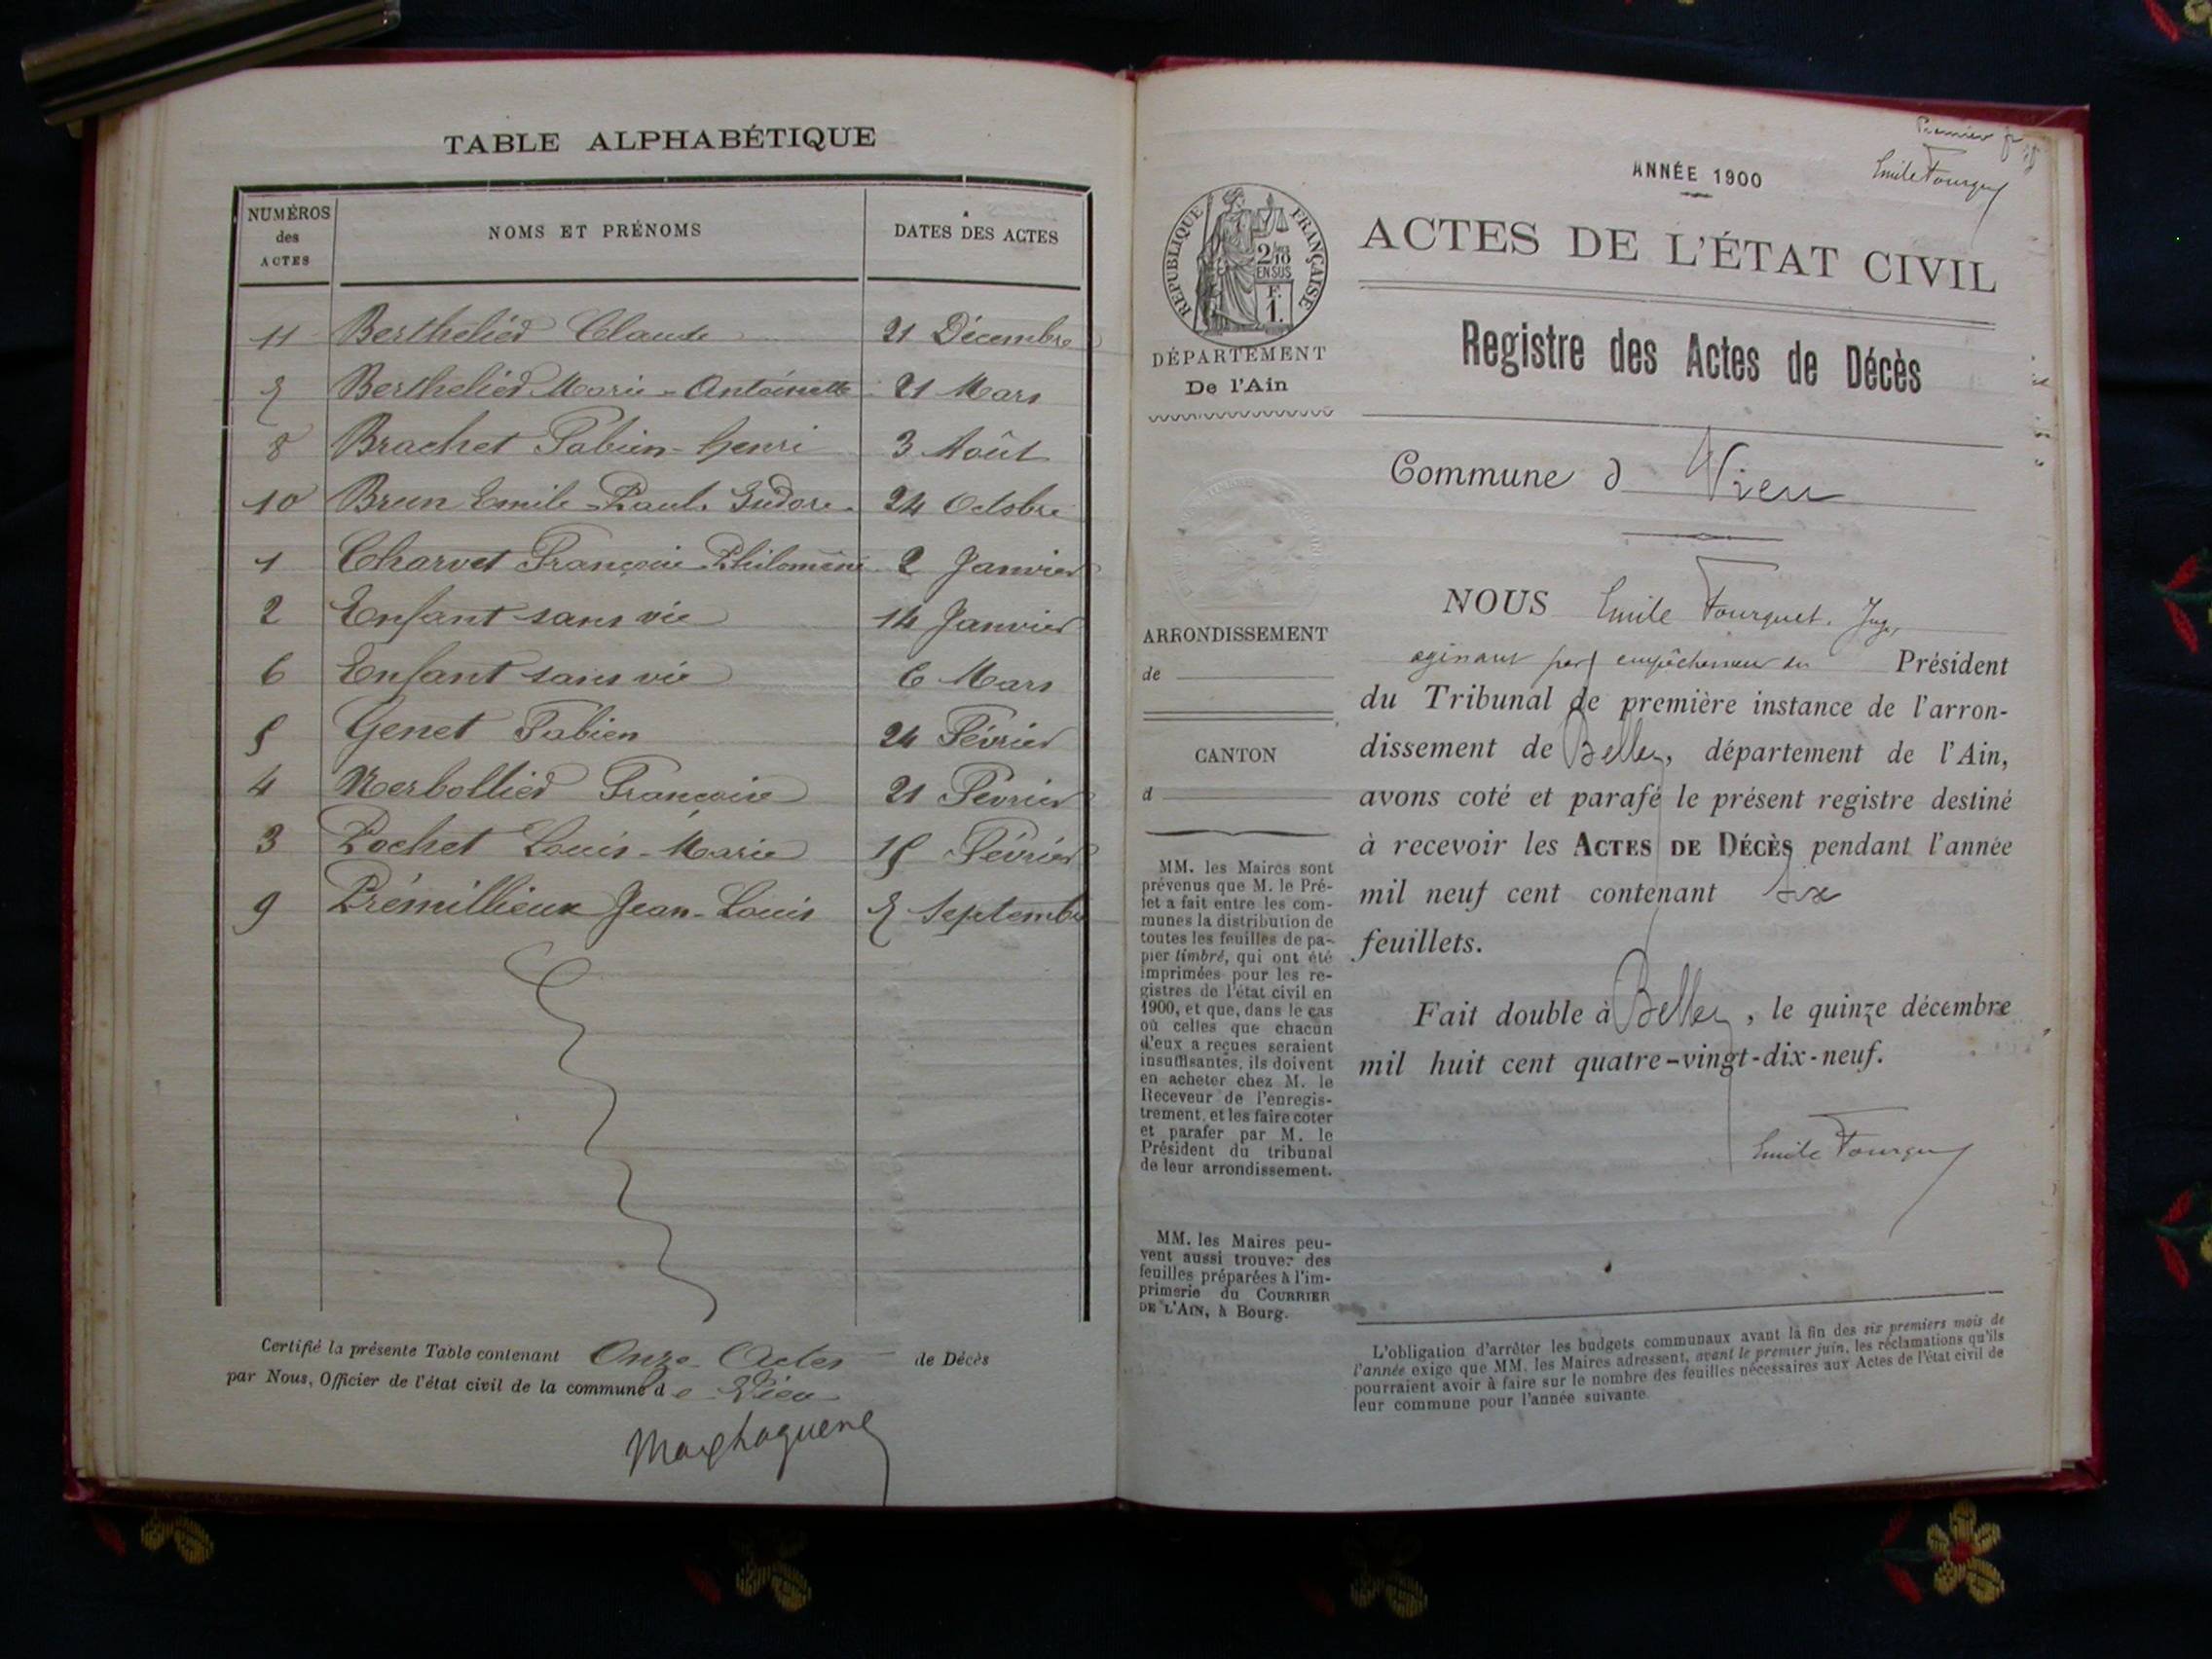 TABLE ALPHABÉTIQUE
NUMÉROS des ACTES NOMS ET PRÉNOMS DATES DES ACTES
11 Berthelier Claude 21 Décembre
7 Berthelier Marie-Antoinette 21 Mars
8 Brachet Fabien-Henri 3 Août
10 Brun Emile-Paul-Isidore 24 Octobre
1 Charvet Françoise Philomène 2 Janvier
2 Enfant sans vie 14 Janvier
6 Enfant sans vie 6 Mars
5 Genet Fabien 24 Février
4 Merbollier Françoise 21 Février
3 Pochet Louis-Marie 15 Février
9 Prémillieux Jean-Louis 7 Septembre
Certifié la présente Table contenant Onze Actes de Décès
par Nous, Officier de l'état civil de la commune de Vieu
ANNÉE 1900
Premier
Emile Fourquet
RÉPUBLIQUE FRANÇAISE
2/10
EN SUS
F.
1.
DÉPARTEMENT
De l'Ain
ARRONDISSEMENT
de
CANTON
d
MM. les Maires sont
prévenus que M. le Pré-
fet a fait entre les com-
munes la distribution de
toutes les feuilles de pa-
pier timbré, qui ont été
imprimées pour les re-
gistres de l'état civil en
1900, et que, dans le cas
où celles que chacun
d'eux a reçues seraient
insuffisantes, ils doivent
en acheter chez M. le
Receveur de l'enregis-
trement, et les faire coter
et parafer par M. le
Président du tribunal
de leur arrondissement.
MM. les Maires peu-
vent aussi trouver des
feuilles préparées à l'im-
primerie du COURRIER
DE L'AIN, à Bourg.
ACTES DE L'ÉTAT CIVIL
Registre des Actes de Décès
Commune d Vieu
NOUS Emile Fourquet, Juge,
par empêchement du Président
du Tribunal de première instance de l'arron-
dissement de Belley, département de l'Ain,
avons coté et parafé le présent registre destiné
à recevoir les ACTES DE DÉCÈS pendant l'année
mil neuf cent contenant six
feuillets.
Fait double à Belley, le quinze décembre
mil huit cent quatre-vingt-dix-neuf.
Emile Fourquet
L'obligation d'arrêter les budgets communaux avant la fin des six premiers mois de
l'année exige que MM. les Maires adressent, avant le premier juin, les réclamations qu'ils
pourraient avoir à faire sur le nombre des feuilles nécessaires aux Actes de l'état civil de
leur commune pour l'année suivante.